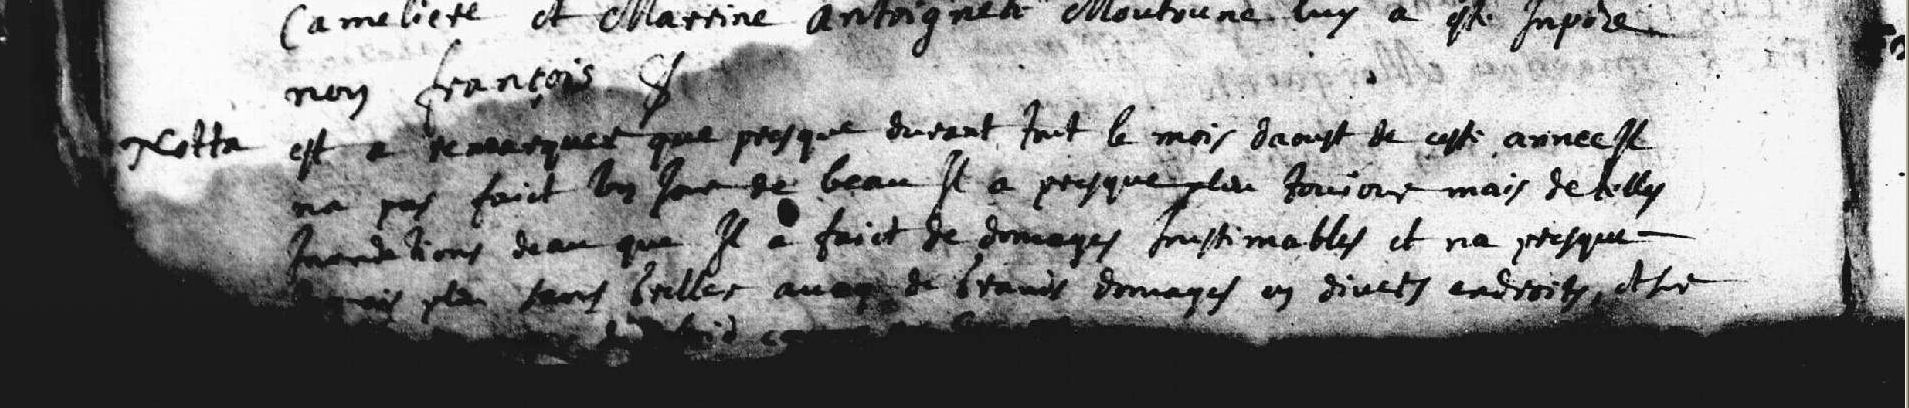 Cameliere et Marrine Antoignete Moutoune luy a este Inpose
non françois
Notta est a remarquer que presque durant tout le mois daoust de ceste annee Il
na pas faict un Jour de beau Il a presque pleu tousiour mais de telles
Innondations deau que Il a faict de domages Inestimables et na presque
Jamais pleu sans greller avecq de grands domages en divers endroits, et sur